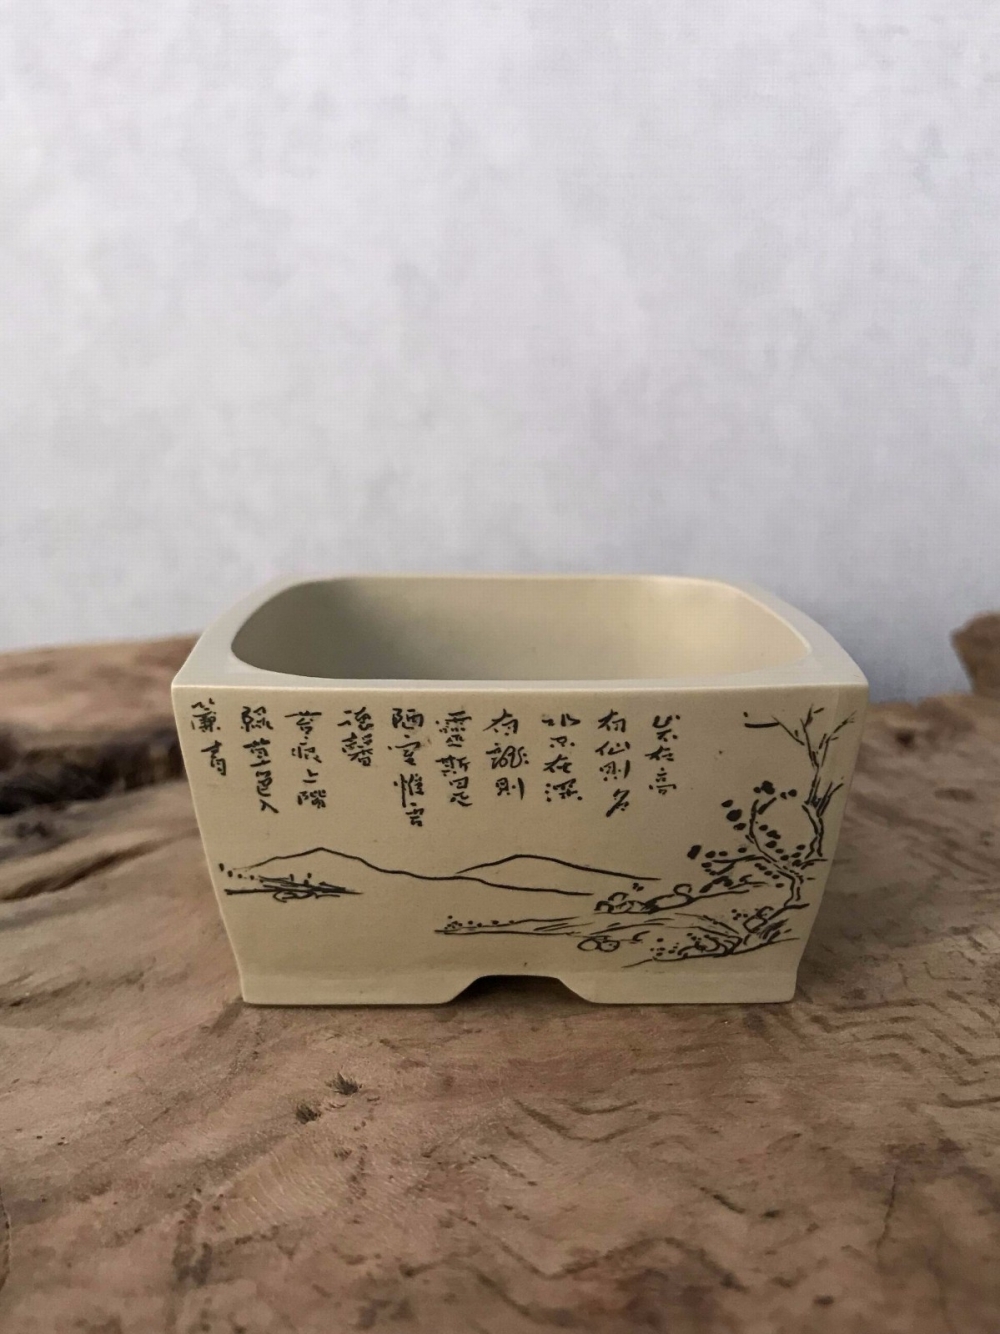 山不在高
有仙則名
水不在深
有龍則
靈斯是
陋室惟吾
德馨
苔痕上階
綠草色入
簾青